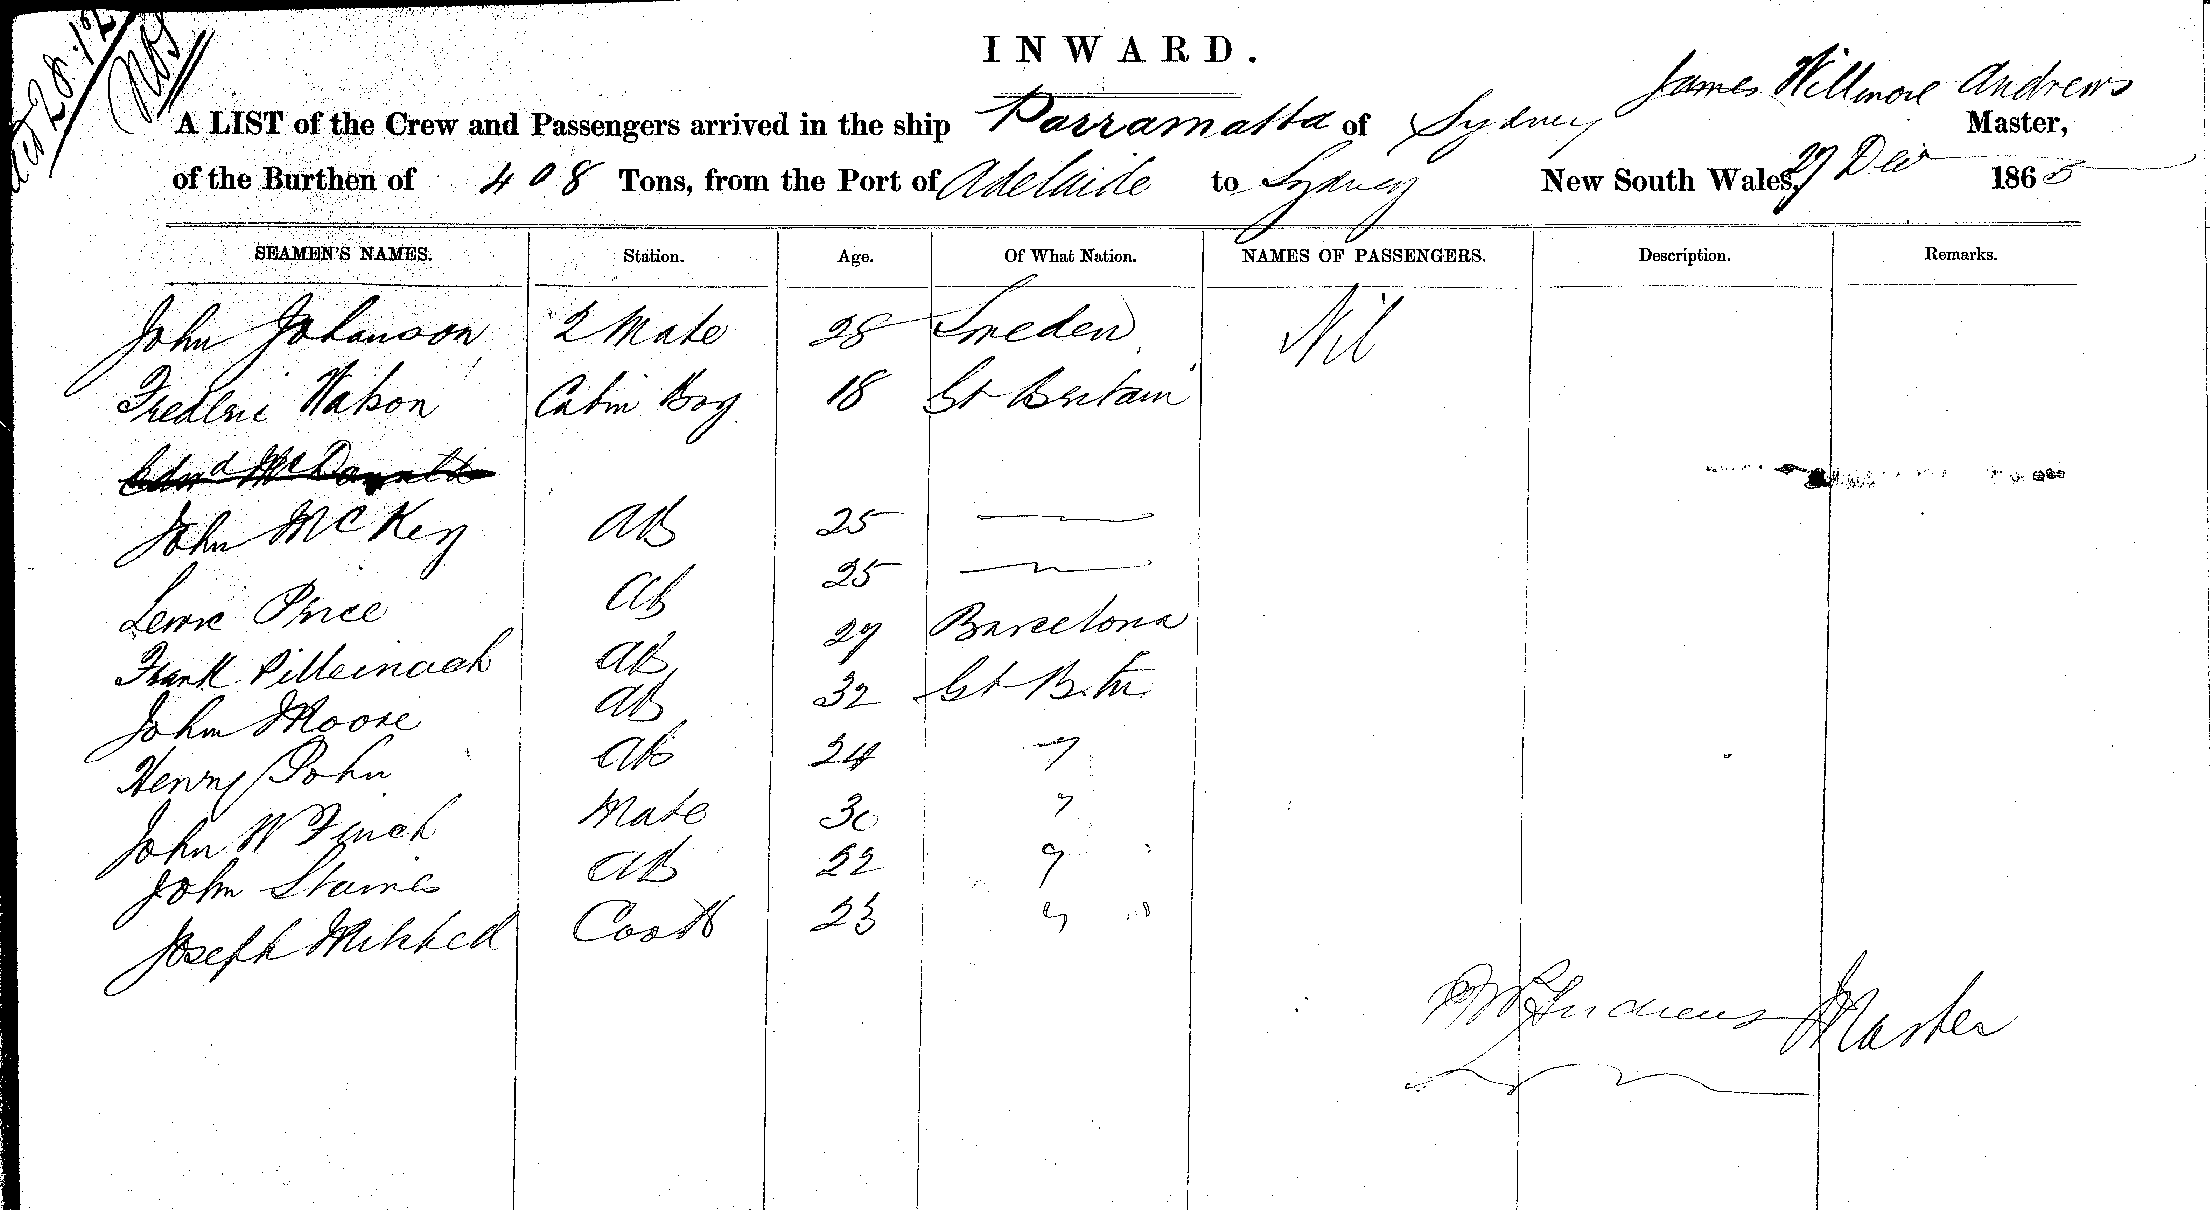 28.12
INWARD.
James Willmore Andrews
A LIST of the Crew and Passengers arrived in the ship Parramatta of Sydney Master,
of the Burthen of 408 Tons, from the Port of Adelaide to Sydney New South Wales, 27 Dec 1865
SEAMEN'S NAMES. Station. Age. Of What Nation. NAMES OF PASSENGERS. Description. Remarks.
John Johanson 2 Mate 28 Sweden Nil
Frederic Watson Cabin Boy 18 Gt Britain
Edwd McDonald
John McKey AB 25 —
Lewis Price AB 25 —
Frank AB 29 Barcelona
John Moore AB 32 Gt Britn
Henry John AB 24 "
John W Finch Mate 30 "
John Staines AB 22 "
Joseph Mitchell Cook 23 "
J W Andrews Master